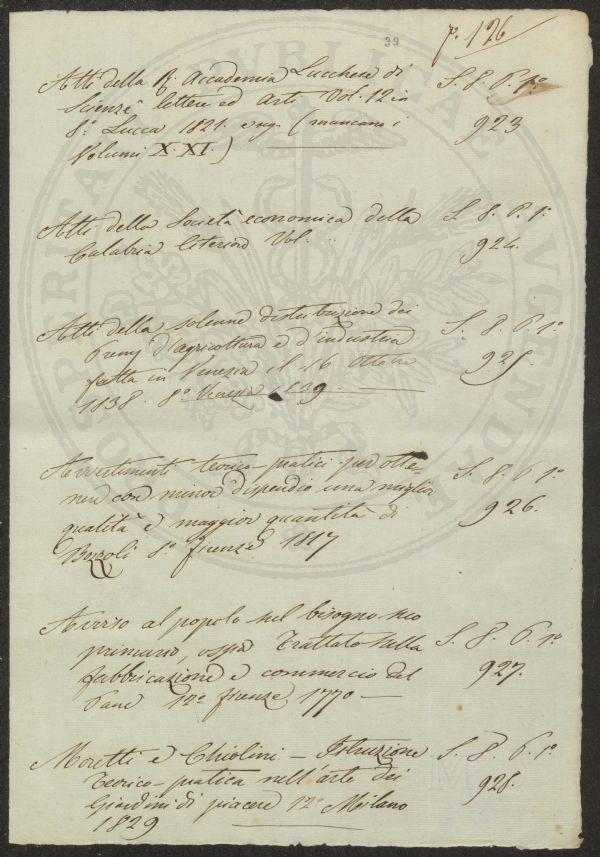 39
p. 126
Atti della R. Accademia Lucchese di
Scienze lettere ed Arti Vol. 12 in
8.° Lucca 1821. (mancano i
Volumi X. XI.)
S. 8. P. 1.°
923
Atti della Società economica della
Calabria Citeriore Vol. ...
S. 8. P. 1.°
924.
Atti della solenne distribuzione dei
Premj d'agricoltura e d'industria
fatta in Venezia il 16 Ottobre
1838. 8.° Venezia 1839.
S. 8. P. 1.°
925.
Avvertimenti teorico-pratici per otte-
nere con minor dispendio una miglior
qualità e maggior quantità di
Bozzoli 8.° Firenze 1817
S. 8. P. 1.°
926.
Avviso al popolo sul bisogno suo
primario, ossia Trattato sulla
fabbricazione e commercio del
Pane 12.° Firenze 1770 —
S. 8. P. 1.°
927.
Moretti e Chiolini — Istruzione
Teorico-pratica nell'arte dei
Giardini di piacere 12.° Milano
1829
S. 8. P. 1.°
928.